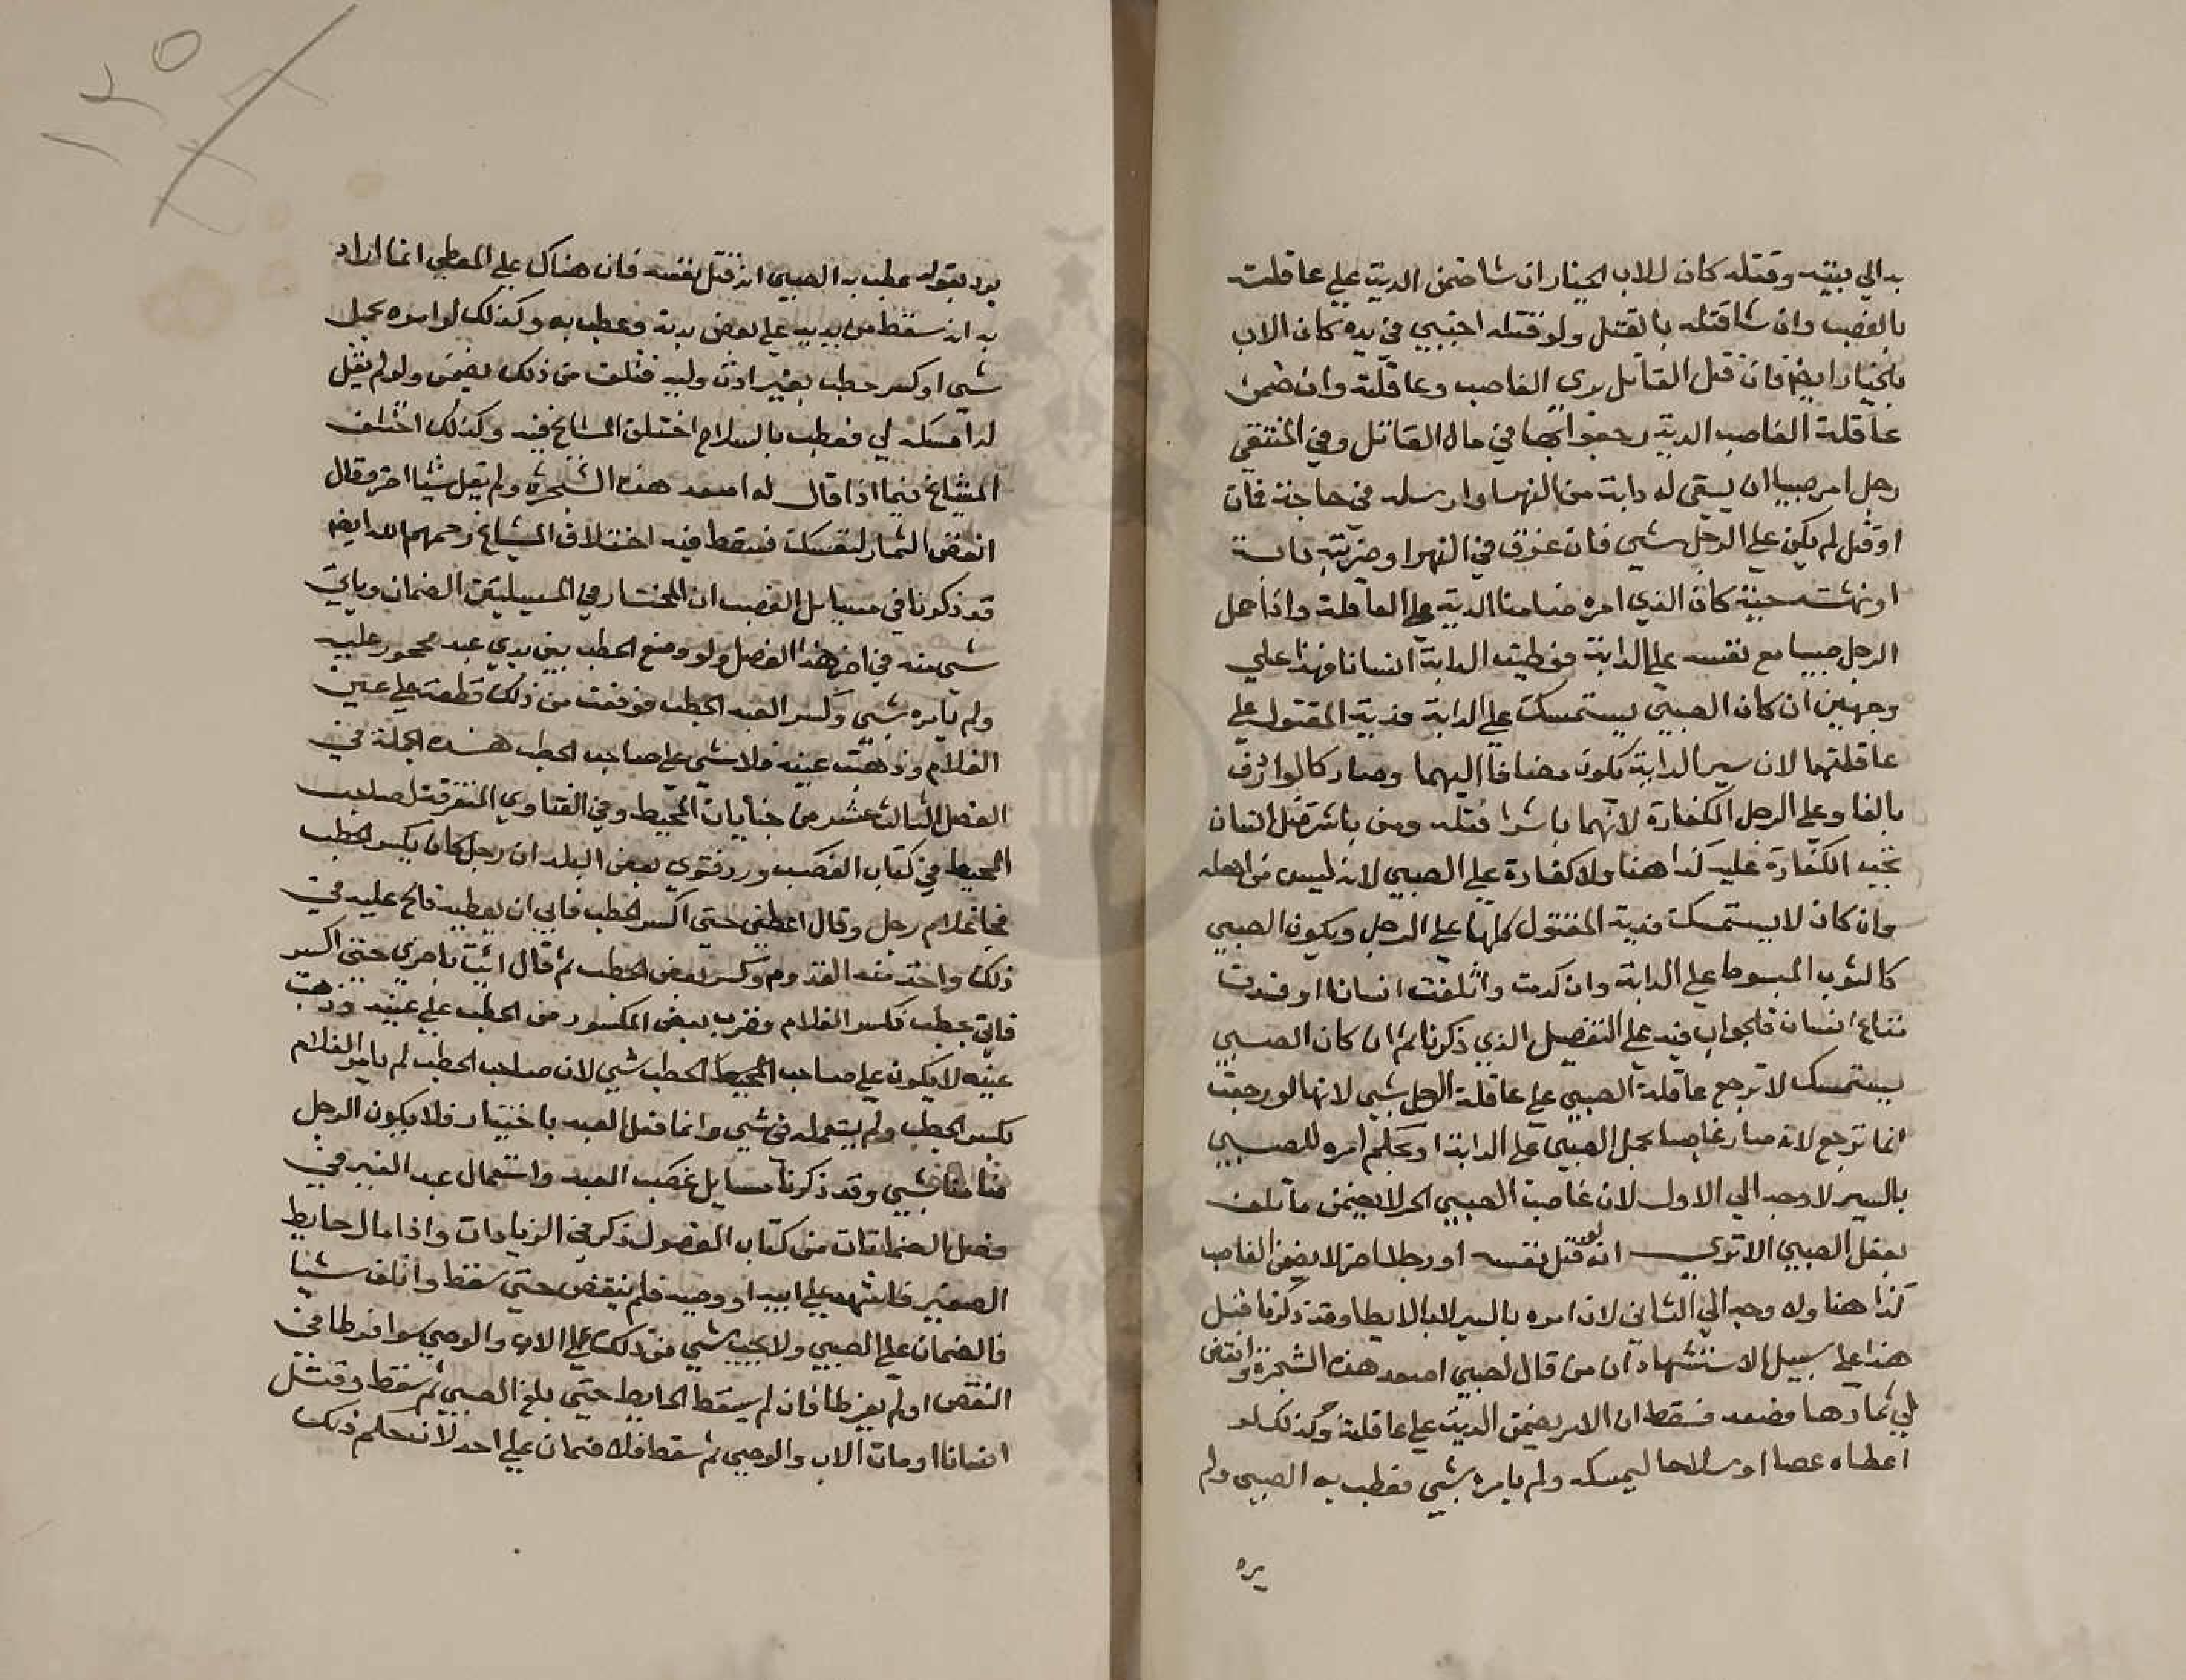 به الي بيته وقتله كان للاب الخيار ان شا ضمن الدية علي عاقلته
بالغصب وان شا قتله بالقتل ولو قتله اجنبي في يده كان الاب
بالخيار ايضا فان قتل القاتل بري الغاصب وعاقلته وان ضمن
عاقلة الغاصب الدية رجعوا بها في مال القاتل وفي المنتقي
رجل امر صبيا ان يسقي له دابة من النهر او ارسله في حاجته فان
او قتل لم يكن علي الرجل شي فان غرق في النهر او ضربته دابة
او نهشته حية كان الذي امره ضامنا الدية علي العاقلة واذا حمل
الرجل صبيا مع نفسه علي الدابة فوطيت الدابة انسانا فهذا علي
وجهين ان كان الصبي يستمسك علي الدابة فدية المقتول علي
عاقلتهما لان سير الدابة يكون مضافا اليهما وصار كالوارث
بالغا وعلي الرجل الكفارة لانهما باشرا قتله ومن باشر قتل انسان
تجب الكفارة عليه كذا هنا ولا كفارة علي الصبي لانه ليس من اهله
وان كان لا يستمسك فدية المقتول كلها علي الرجل ويكون الصبي
كالثوب المبسوط علي الدابة وان كدمت واتلفت انسانا او افسدت
متاع انسان فالجواب فيه علي التفصيل الذي ذكرنا ثم ان كان الصبي
يستمسك لا ترجع عاقلة الصبي علي عاقلة الرجل بشي لانها لو رجعت
انما ترجع لانه صار غاصبا بحمل الصبي علي الدابة او بحكم امره للصبي
بالسير لا وجه الي الاول لان غاصب الصبي الحر لا يضمن ما تلف
بفعل الصبي الا تري انه لو قتل نفسه او رجلا اخر لا يضمن الغاصب
كذا هنا ولا وجه الي الثاني لان امره بالسير لا بالايطا وقد ذكرنا قبل
هذا علي سبيل الاستشهاد ان من قال لصبي اصعد هذه الشجرة وانفض
لي ثمارها فصعد فسقط ان الامر يضمن الدية علي عاقلته وكذلك لو
اعطاه عصا او سلاحا ليمسكه ولم يامره بشي فعطب به الصبي ولم
يرد
يرد بقوله عطب به الصبي انه قتل نفسه فان هناك علي المعطي انما اراد
به انه سقط من يديه علي بعض بدنه وعطب به وكذلك لو امره بحمل
شي او كسر حطب بغير اذن وليه فتلف من ذلك يضمن ولو لم يقل
له امسكه لي فعطب بالسلاح اختلف المشايخ فيه وكذلك اختلف
المشايخ فيما اذا قال له اصعد هذه الشجرة ولم يقل شيا اخر وقال
انفض الثمار لنفسك فسقط فيه اختلاف المشايخ رحمهم الله ايضا
قد ذكرنا في مسايل الغصب ان المختار في المسيلتين الضمان وياتي
شي منه في اخر هذا الفصل ولو وضع الحطب بين يدي عبد محجور عليه
ولم يامره بشي وكسر العبد الحطب فوقعت من ذلك قطعة علي عين
الغلام وذهبت عينه فلا شي علي صاحب الحطب هذه الجملة في
الفصل الثالث عشر من جنايات المحيط وفي الفتاوي المتفرقة لصاحب
المحيط في كتاب الغصب ورد فتوي بعض البلد ان رجل كان يكسر الحطب
فجا غلام رجل وقال اعطني حتي اكسر الحطب فابي ان يعطيه فالح عليه في
ذلك واخذ منه القدوم وكسر بعض الحطب ثم قال ائت باخري حتي اكسر
فاتي بحطب فكسر الغلام فضرب بعض المكسور من الحطب علي عينه وذهبت
عينه لا يكون علي صاحب المحيط الحطب شي لان صاحب الحطب لم يامر الغلام
بكسر الحطب ولم يستعمله في شي وانما فعل العبد باختيار فلا يكون الرجل
ضامنا بشي وقد ذكرنا مسايل غصب العبد واستعمال عبد الغير في
فصل الضمانات من كتاب الفصول ذكر في الزيادات واذا مال حايط
الصغير فاشهد علي ابيه او وصيه فلم ينقض حتي سقط واتلف شيا
فالضمان علي الصبي ولا يجب شي من ذلك علي الاب والوصي سوا فرطا في
النقض او لم يفرطا فان لم يسقط الحايط حتي بلغ الصبي ثم سقط وقتل
انسانا او مات الاب والوصي ثم سقط فلا ضمان علي احد لان حكم ذلك